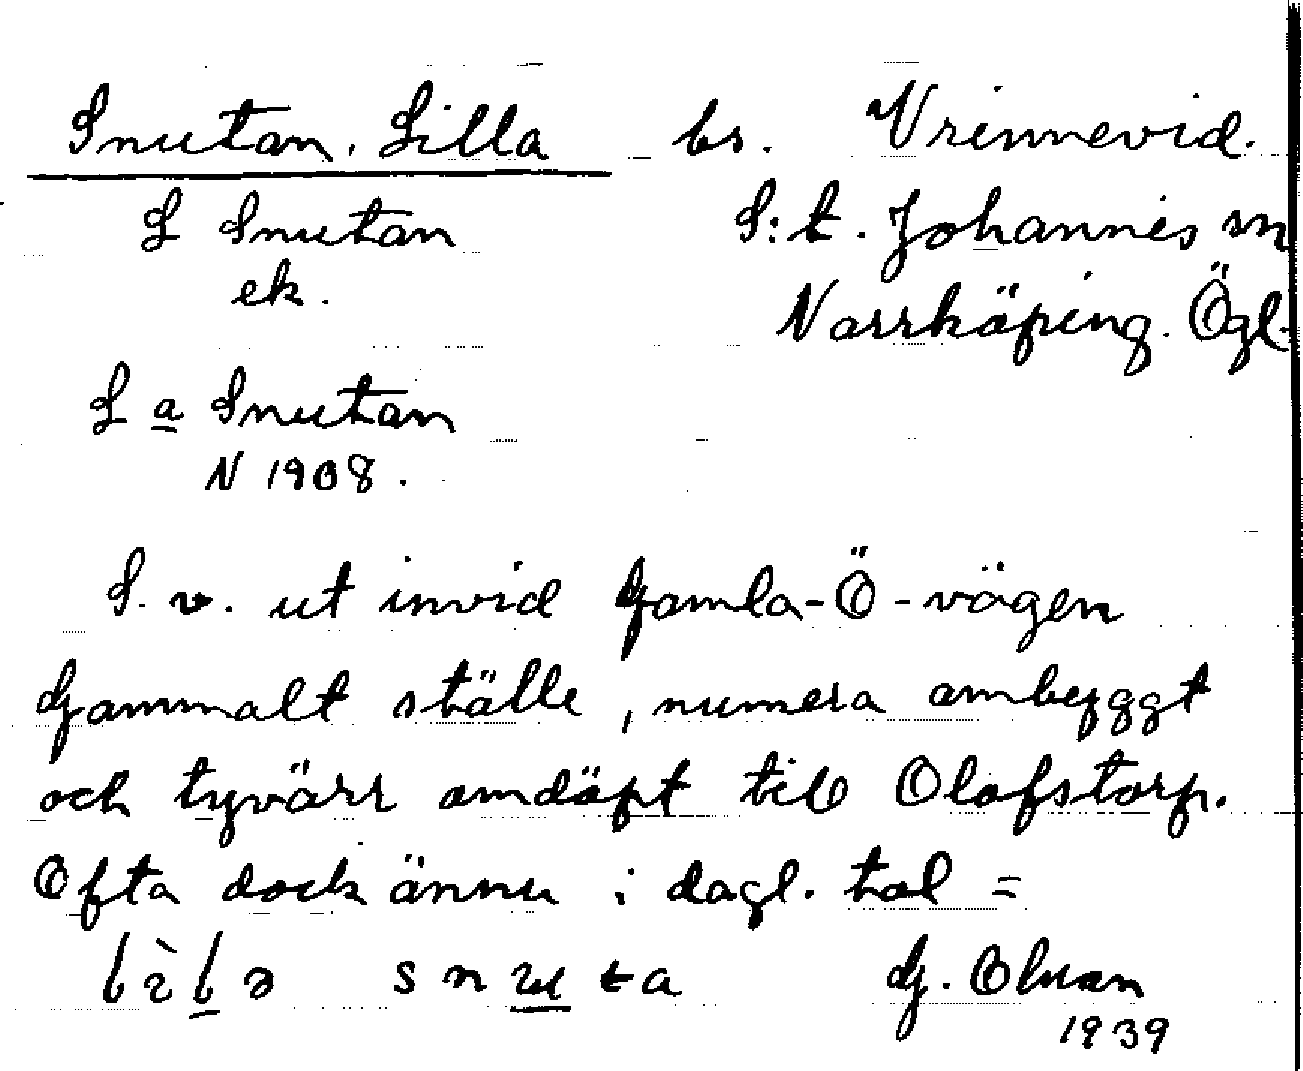 Snutan, Lilla bs. Vrinnevid.
L Snutan S:t. Johannes sn
ek. Norrköping. Ögl.
L a Snutan
N 1908.
S. v. ut invid Gamla-Ö-vägen
Gammalt ställe, numera ombyggt
och tyvärr omdöpt till Olofstorp.
Ofta dock ännu i dagl. tal =
snuta G.
1939